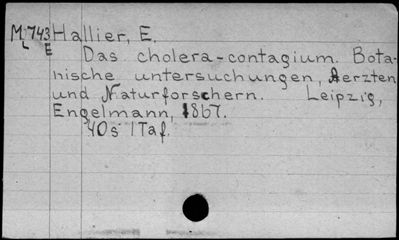 M743 Hallier, E.
L E
Das cholera-contagium. Bota-
nische untersuchungen, Aerzten
und Naturforschern. Leipzig,
Engelmann, 1867.
40s 1Taf.